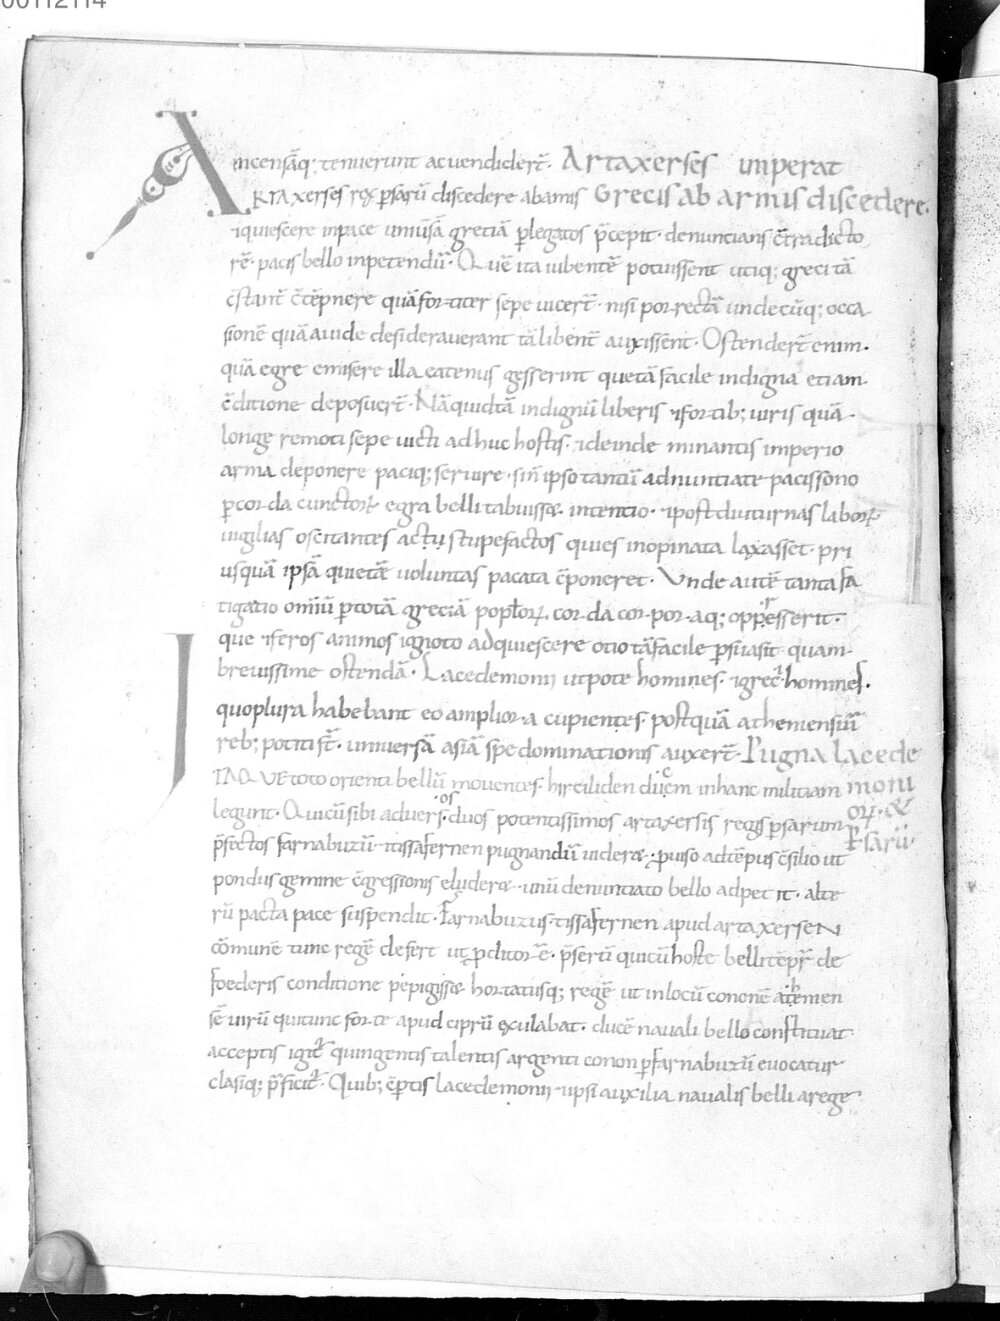 00112114
incensāq; tenuerunt ac uendider̄t. Artaxerses imperat
ARTAxerses rex p̱sarū discedere ab armis Grecis ab armis discedere.
⁊quiescere in pace uniūsā greciā p̱ legatos p̄cepit. denuncians c̄tradicto
rē pacis bello inpetendū. Quē ita iubentē potuissent utiq; greci tā
c̄stant̄ c̄tēpnere quā fortiter sepe uicer̄t. nisi porrectā undecūq; occa
sionē quā auide desiderauerant tā libent̄ auxissēnt. Ostender̄t enim.
quā egre emisere illa eatenus gesserint que tā facile indigna etiam
c̄ditione deposuer̄t. Nā quid tā indignū liberis ⁊fortib; uiris quā.
longe remoti sepe uicti adhuc hostis. ⁊deinde minantis imperio
arma deponere paciq; seruire. sin̄ ipso tantū adnuntiate pacis sono
p̱ corda cunctoꝝ egra belli tabuisse intencio. ⁊post diuturnas laboꝝ
uigilias oscitantes actu stupefactos quies inopinata laxasset. pri
usquā ipsā quietē uoluntas pacata c̄poneret. Vnde autē tanta fa
tigatio om̄iū p̱ totā greciā pop̄loꝝ. corda corporaq; oppresserit.
que ⁊feros animos ignoto adquiescere otio tā facile p̱suasit quam
breuissime ostendā. Lacedemonii utpote homines. ⁊grec̄i homines.
quo plura habebant eo ampliora cupientes postquā atheniensiū
reb; potiti st̄. uniuersā asiā spe dominationis auxer̄t. Pugna lacede
ITAQVE toto orienti bellū mouentes. hirciliden ducem in hanc militiam moni
legunt. Qui cū sibi aduersos duos potentissimos artaxersis regis p̱sarum oꝝ. &
p̄fectos farnabuzū ⁊tissafernen pugnandū uidere. ꝓuiso ad tēpus c̄silio ut p̱sarū
pondus gemine c̄gressionis eludere. unū denuntiato bello adpetit. alte
rū pacta pace suspendit. Farnabuzus. tissafernen apud artaxerseN
cōmunē tunc regē defert ut ꝓditorē. p̄sertū qui cū hoste belli tēpr̄ de
foederis conditione pepigisse. hortatusq; regē ut in locū cononē athenien
sē uirū qui tunc forte apud ciprū exulabat. ducē nauali bello constituat.
acceptis igit̄ quingentis talentis argenti conon p̱ farnabuzū euocatur
clasiq; p̄ficit̄. Quib; c̄ptis lacedemonii ⁊ipsi auxilia naualis belli a rege